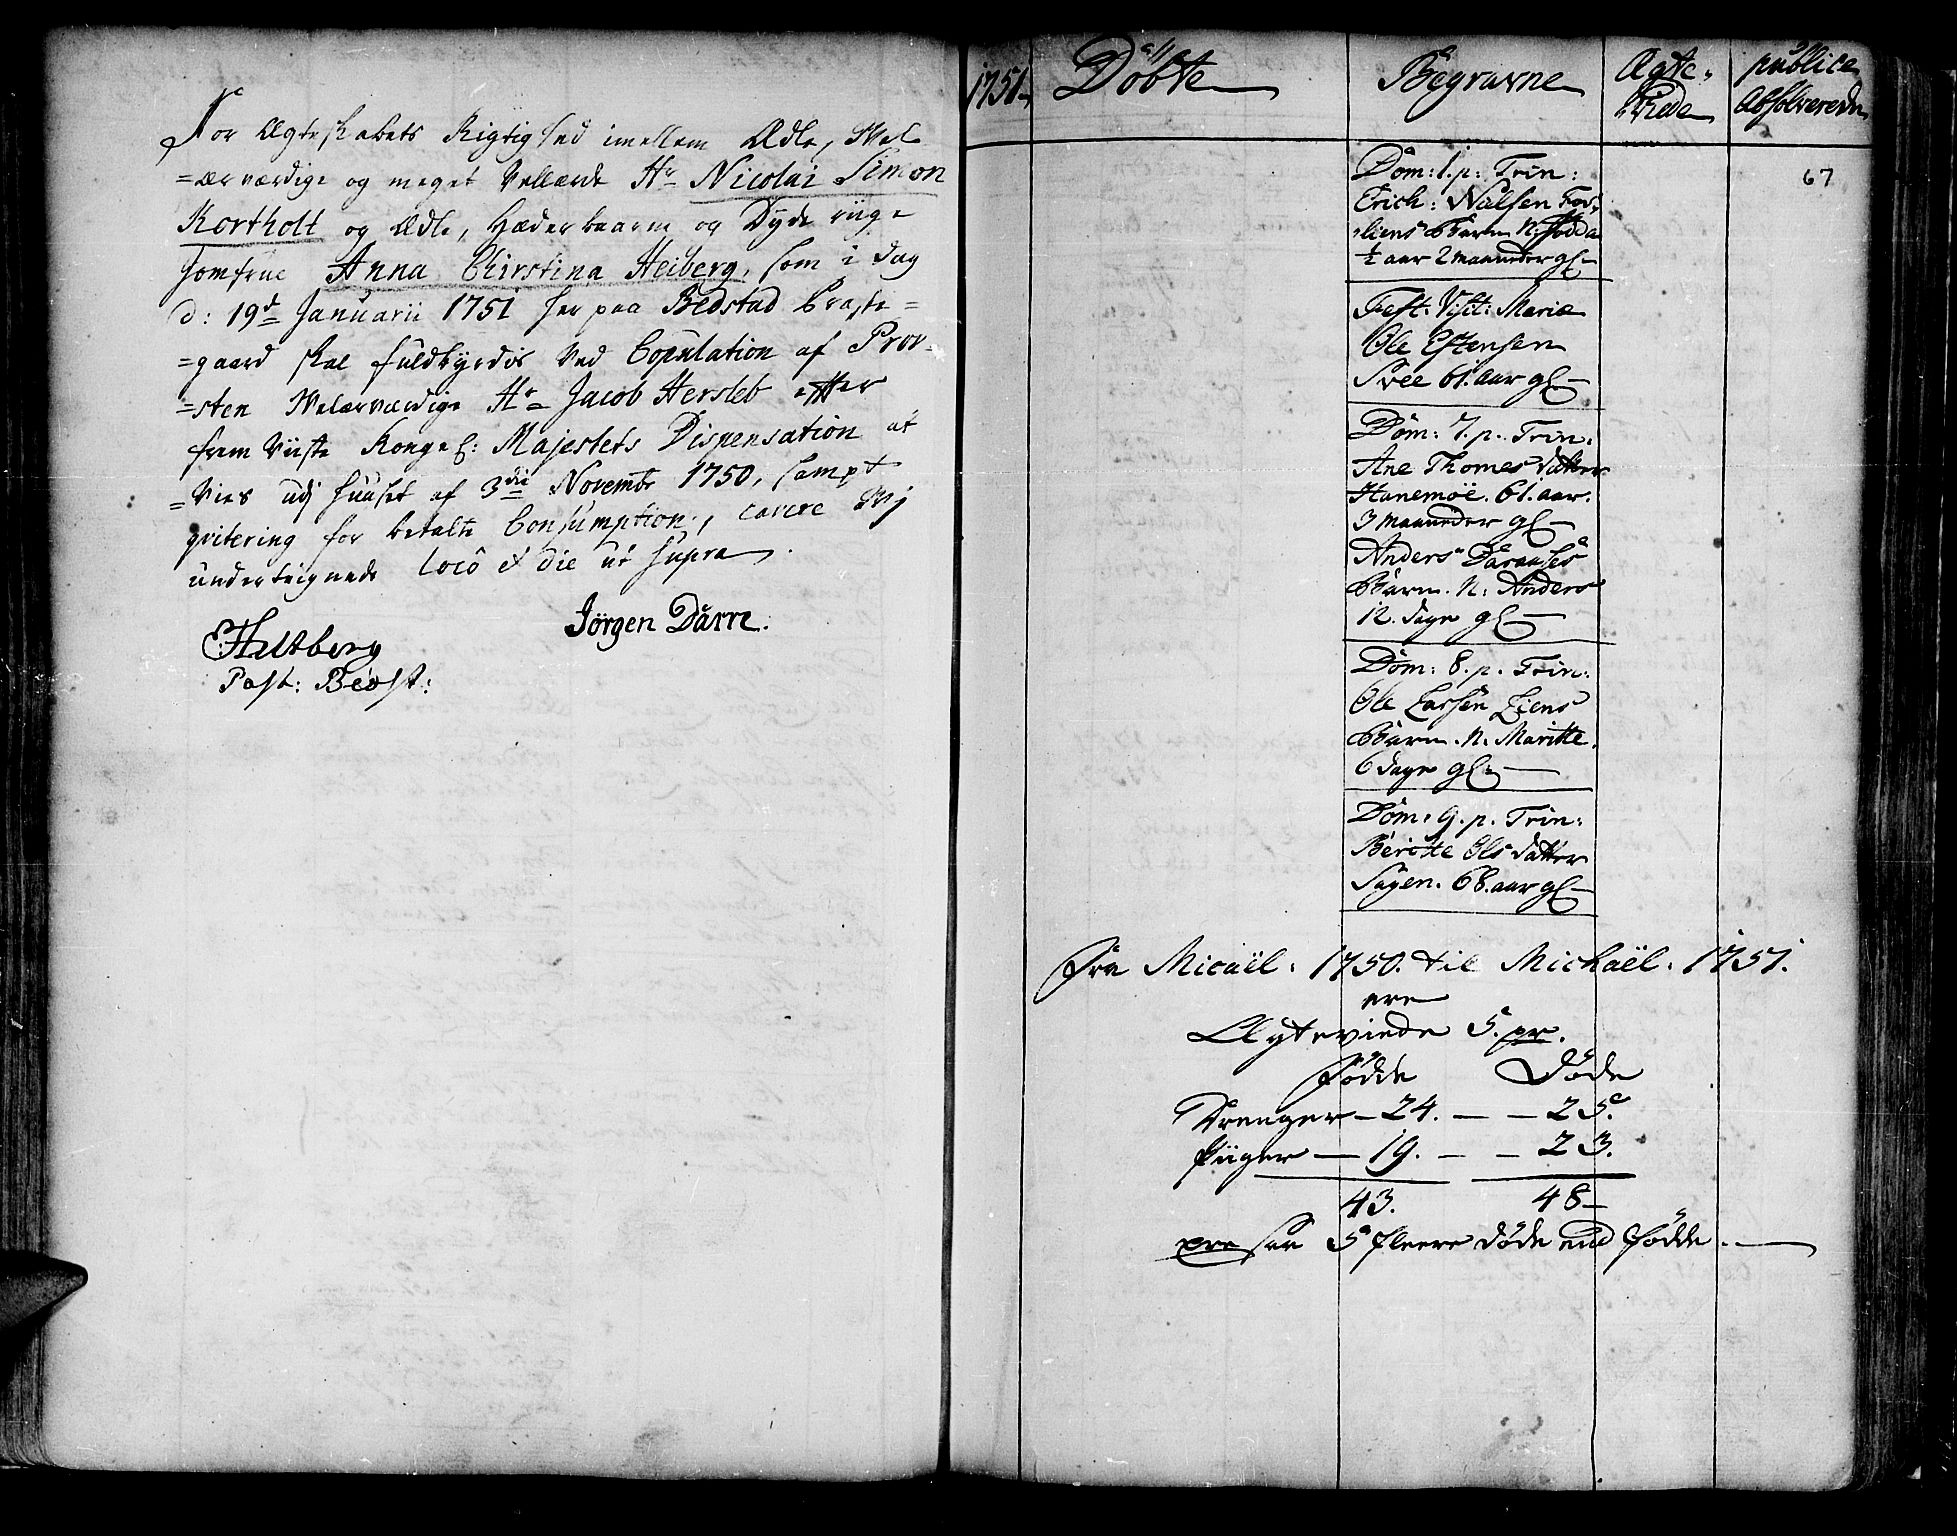 For Ægteskabets Rigtighed imellem Ædle, Vel
=ærværdige og meget Vellærde Hr Nicolai Simon
Kortholt og Ædle, Hæderbaarne og Dyde riige
Jomfrue Anna Chirstina Heiberg, som i dag
d: 19de Januarii 1751 her paa Bedstad Præste=
=gaard skal fuldbyrdes ved Copulation af Prov-
=sten Velærværdige Hr Jacob Hersleb efter
frem viiste Kongel: Majestets Dispensation at
=Vies udj Huuset af 3die Novembr 1750, sampt
qvitering for betalte Consumption, cavere Vj
underteignede Locô et die ut supra.
Jörgen Dårre.
Heltberg
Past: Bedst:
1751 Döbte Begravne Ægte- publice
Viede Absolverede
67
Dom: 1. p: Trin:
Erich: Nielsen
Barn N:
½ aar 2 maaneder gl
Fest: Visit: Mariæ
Ole Estensen
Svee 61. aar gl
Dom: 7. p. Trin:
Ane Thomesdatter
Hanemöe. 61. aar.
3 maaneder gl
Anders
Barn. N: Anders
12. dage gl
Dom: 8. p. Trin:
Ole Larsen Liens
Barn. N. Maritte.
6 dage gl:
Dom: 9. p. Trin:
Beritte Olsdatter
68. aar gl
Fra Micaël. 1750. til Michaël. 1751.
ere
Ægteviede 5. pr.
Födde Döde
Drenger - 24. - - 25.
Piiger - 19. - - 23.
43. 48
5 fleere döde end födde.